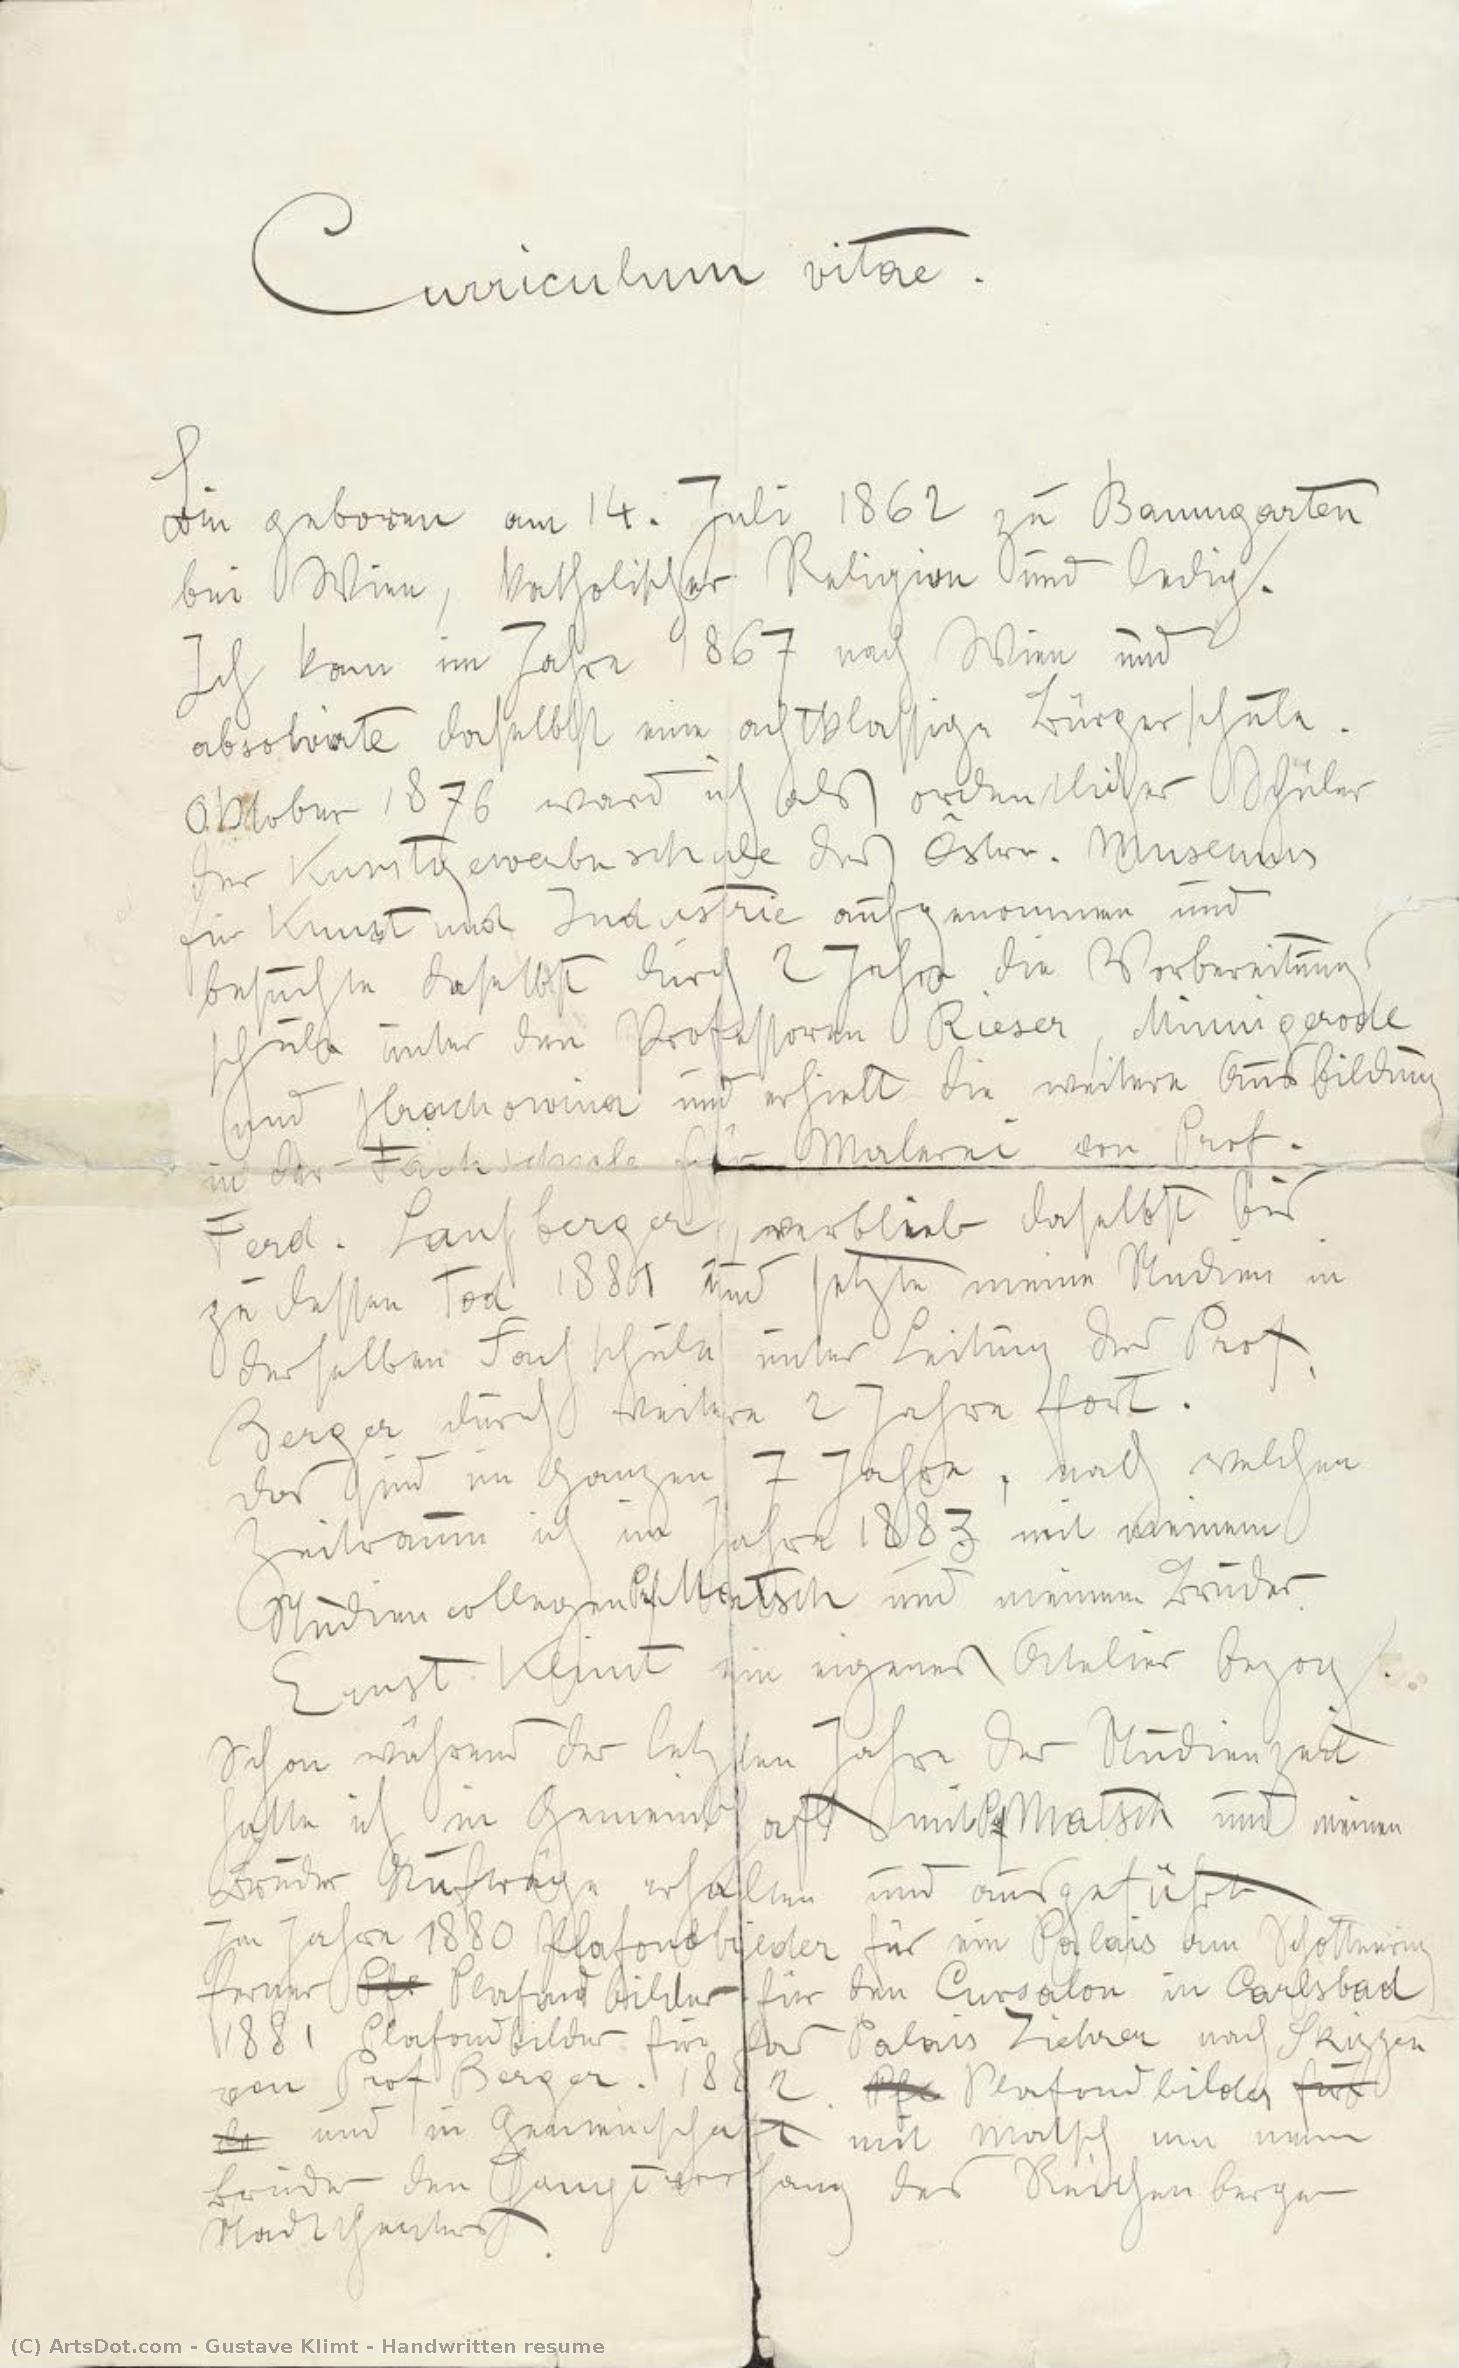 Curriculum vitae.
Bin geboren am 14. Juli 1862 zu Baumgarten
bei Wien, katholischer Religion und ledig.
Ich kam im Jahre 1867 nach Wien und
absolvirte daselbst eine achtklassige Bürgerschule.
Oktober 1876 ward ich als ordentlicher Schüler
der Kunstgewerbeschule des Österr. Museums
für Kunst und Industrie aufgenommen und
besuchte daselbst durch 2 Jahre die Vorbereitung
schule unter den Professoren Rieser, Minnigerode
und Hrachowina und erhielt die weitere Ausbildung
in der Fachschule für Malerei von Prof.
Ferd. Laufberger, verblieb daselbst bis
zu dessen Tod 1881 und setzte meine Studien in
derselben Fachschule unter Leitung des Prof.
Berger durch weitere 2 Jahre fort.
das sind im Ganzen 7 Jahre, nach welchen
Zeitraum ich im Jahre 1883 mit meinem
Studiencollegen Matsch und meinem Bruder
Ernst Klimt ein eigenes Atelier bezog.
Schon während der letzten Jahre der Studienzeit
hatte ich in Gemeinschaft mit Matsch und meinen
Bruder Aufträge erhalten und ausgeführt
Im Jahre 1880 Plafondbilder für ein Palais am Schottenring
ferner Plafondbilder für den Cursalon in Carlsbad
1881 Plafondbilder für das Palais Ziehrer nach Skizzen
von Prof Berger. 1882. Plafondbilder
und in Gemeinschaft mit Matsch
Bruder den Hauptvorhang des Reichenberger
Stadttheaters.
(C) ArtsDot.com - Gustave Klimt - Handwritten resume